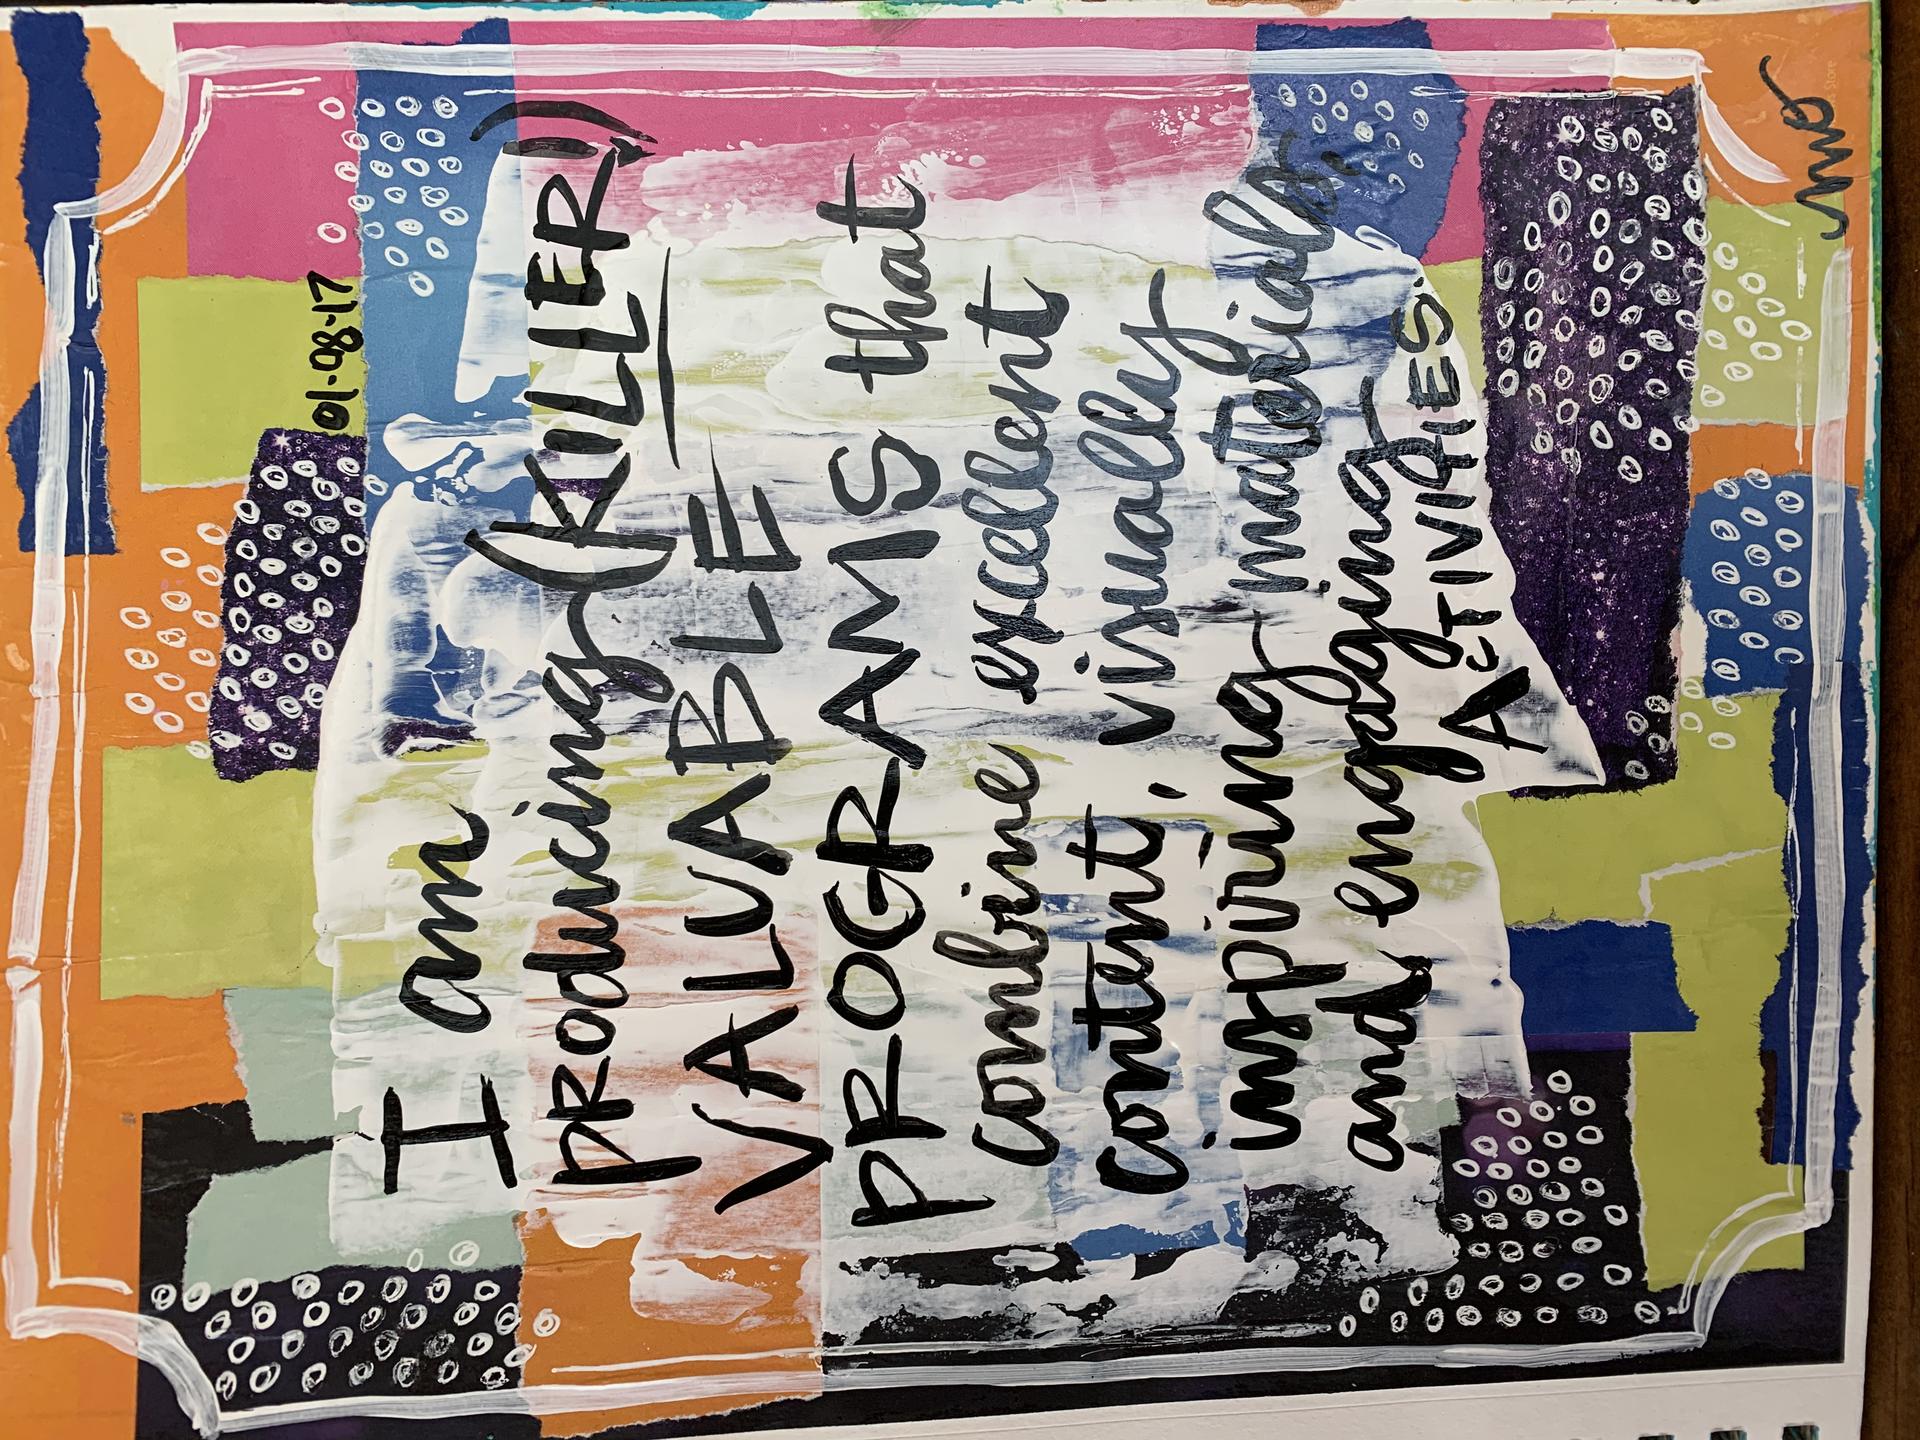 01-08-17
I am
producing (KILLER)
VALUABLE
PROGRAMS that
combine excellent
content, visually
inspiring materials,
and engaging
ACTIVITIES.
Store